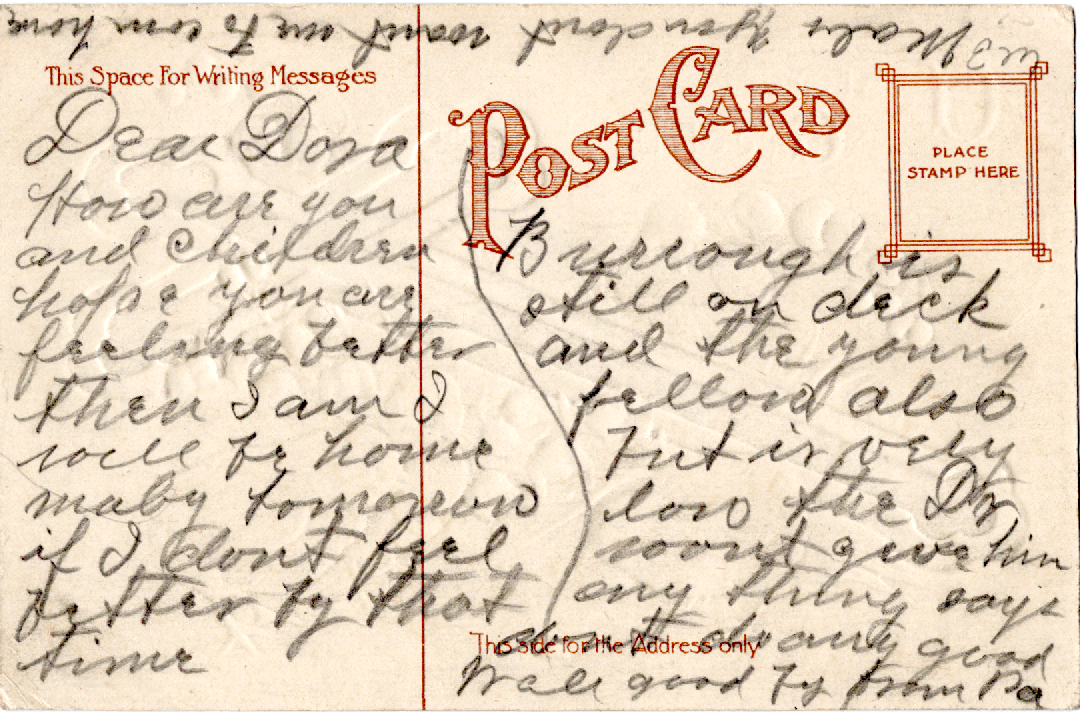 Maby you dont want me to com home
This Space For Writing Messages
POST CARD
PLACE
STAMP HERE
Dear Dora
How are you
and children
hope you are
feeling better
then I am I
will be home
maby tomorrow
if I dont feel
better by that
time
Burrough is
still on deck
and the young
fellow also
but is very
low the Dr
wont give him
any thing says
dont do any good
This side for the Address only
Well good by from Pa